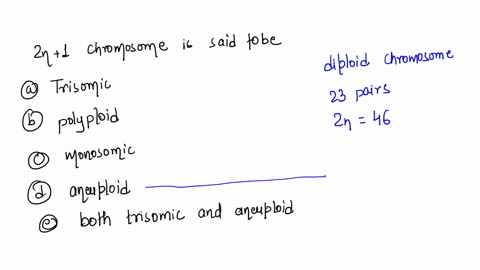 2n+1 chromosome is said to be
(a) Trisomic
(b) polyploid
(c) monosomic
(d) aneuploid
(e) both trisomic and aneuploid
diploid chromosome
23 pairs
2n = 46